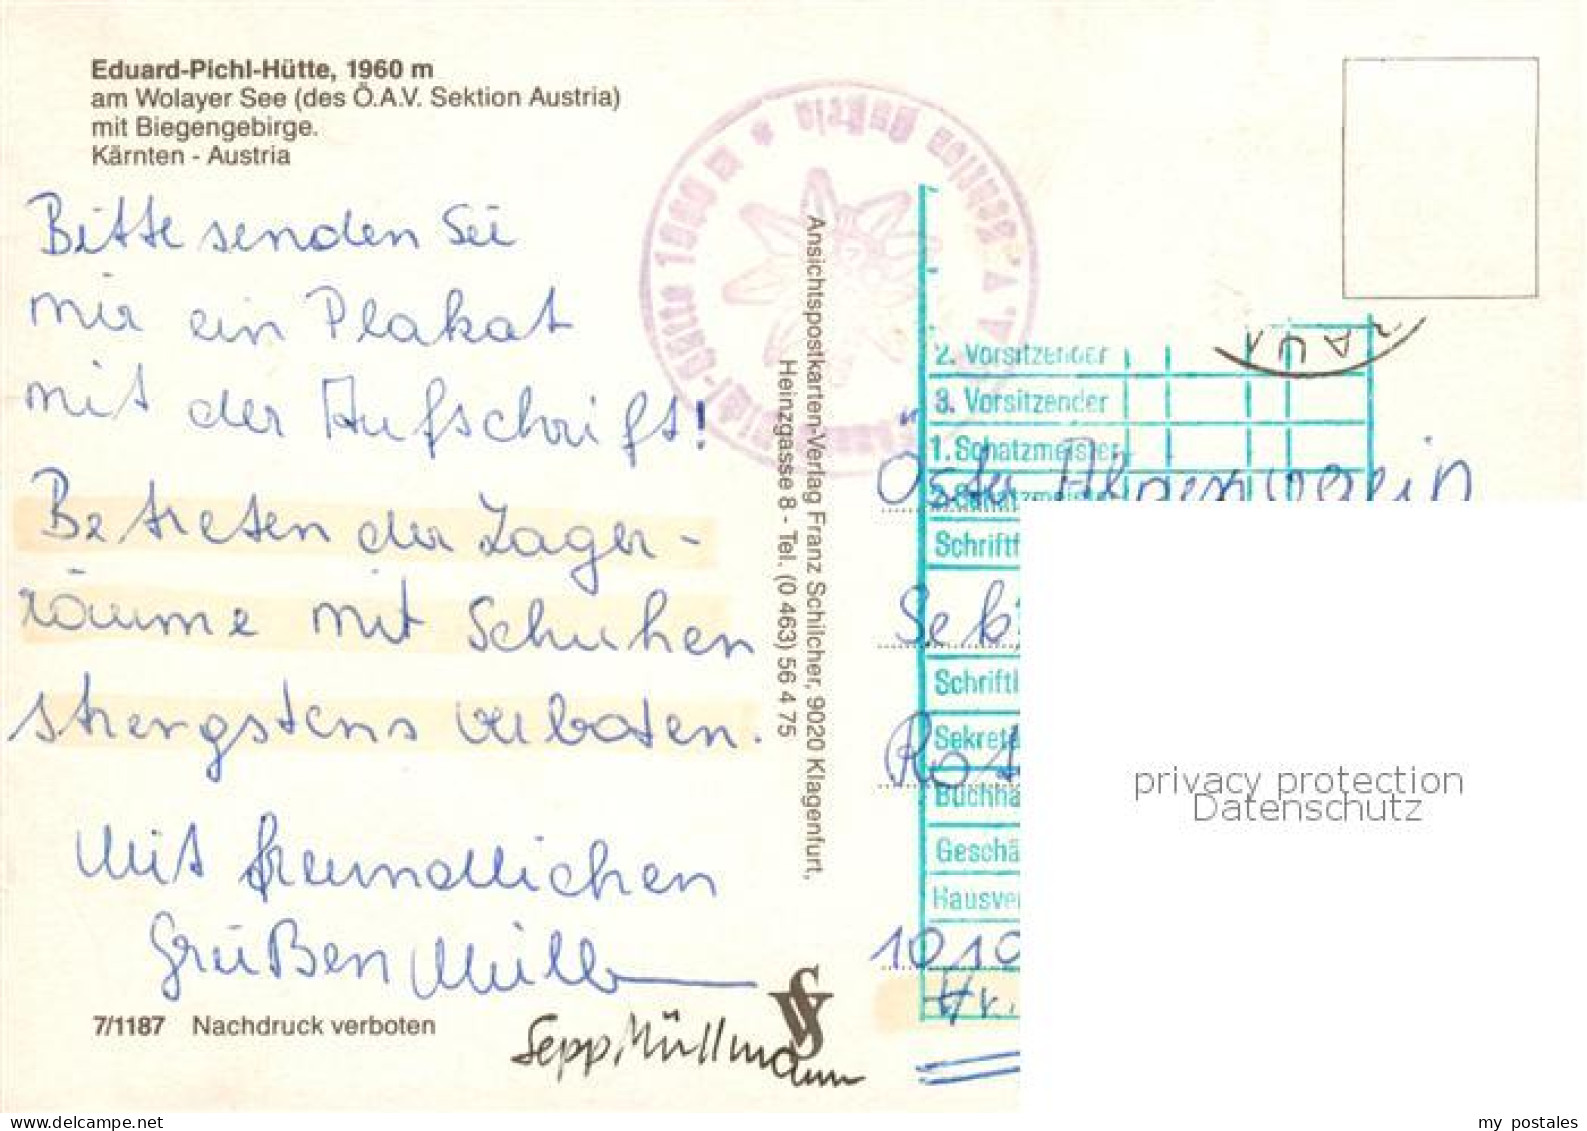 Eduard-Pichl-Hütte, 1960 m
am Wolayer See (des Ö.A.V. Sektion Austria)
mit Biegengebirge.
Kärnten - Austria
Bitte senden Sei
mir ein Plakat
mit der Aufschrift!
Betreten der Lager-
räume mit Schuhen
strengstens verboten.
Mit freundlichen
Grüßen Müll
Sepp Müllmann
7/1187 Nachdruck verboten
Ansichtspostkarten-Verlag Franz Schilcher, 9020 Klagenfurt,
Heinzgasse 8 - Tel. (0 463) 56 4 75
1960 m *
2. Vorsitzender
3. Vorsitzender
1. Schatzmeister
2. Schatzmeister
Schriftf
Schriftl
Sekretä
Buchha
Geschä
Hausve
Öster Alpenverein
Seb
Rot
1010
Hr.
privacy protection
Datenschutz
www.delcampe.net
my_postales